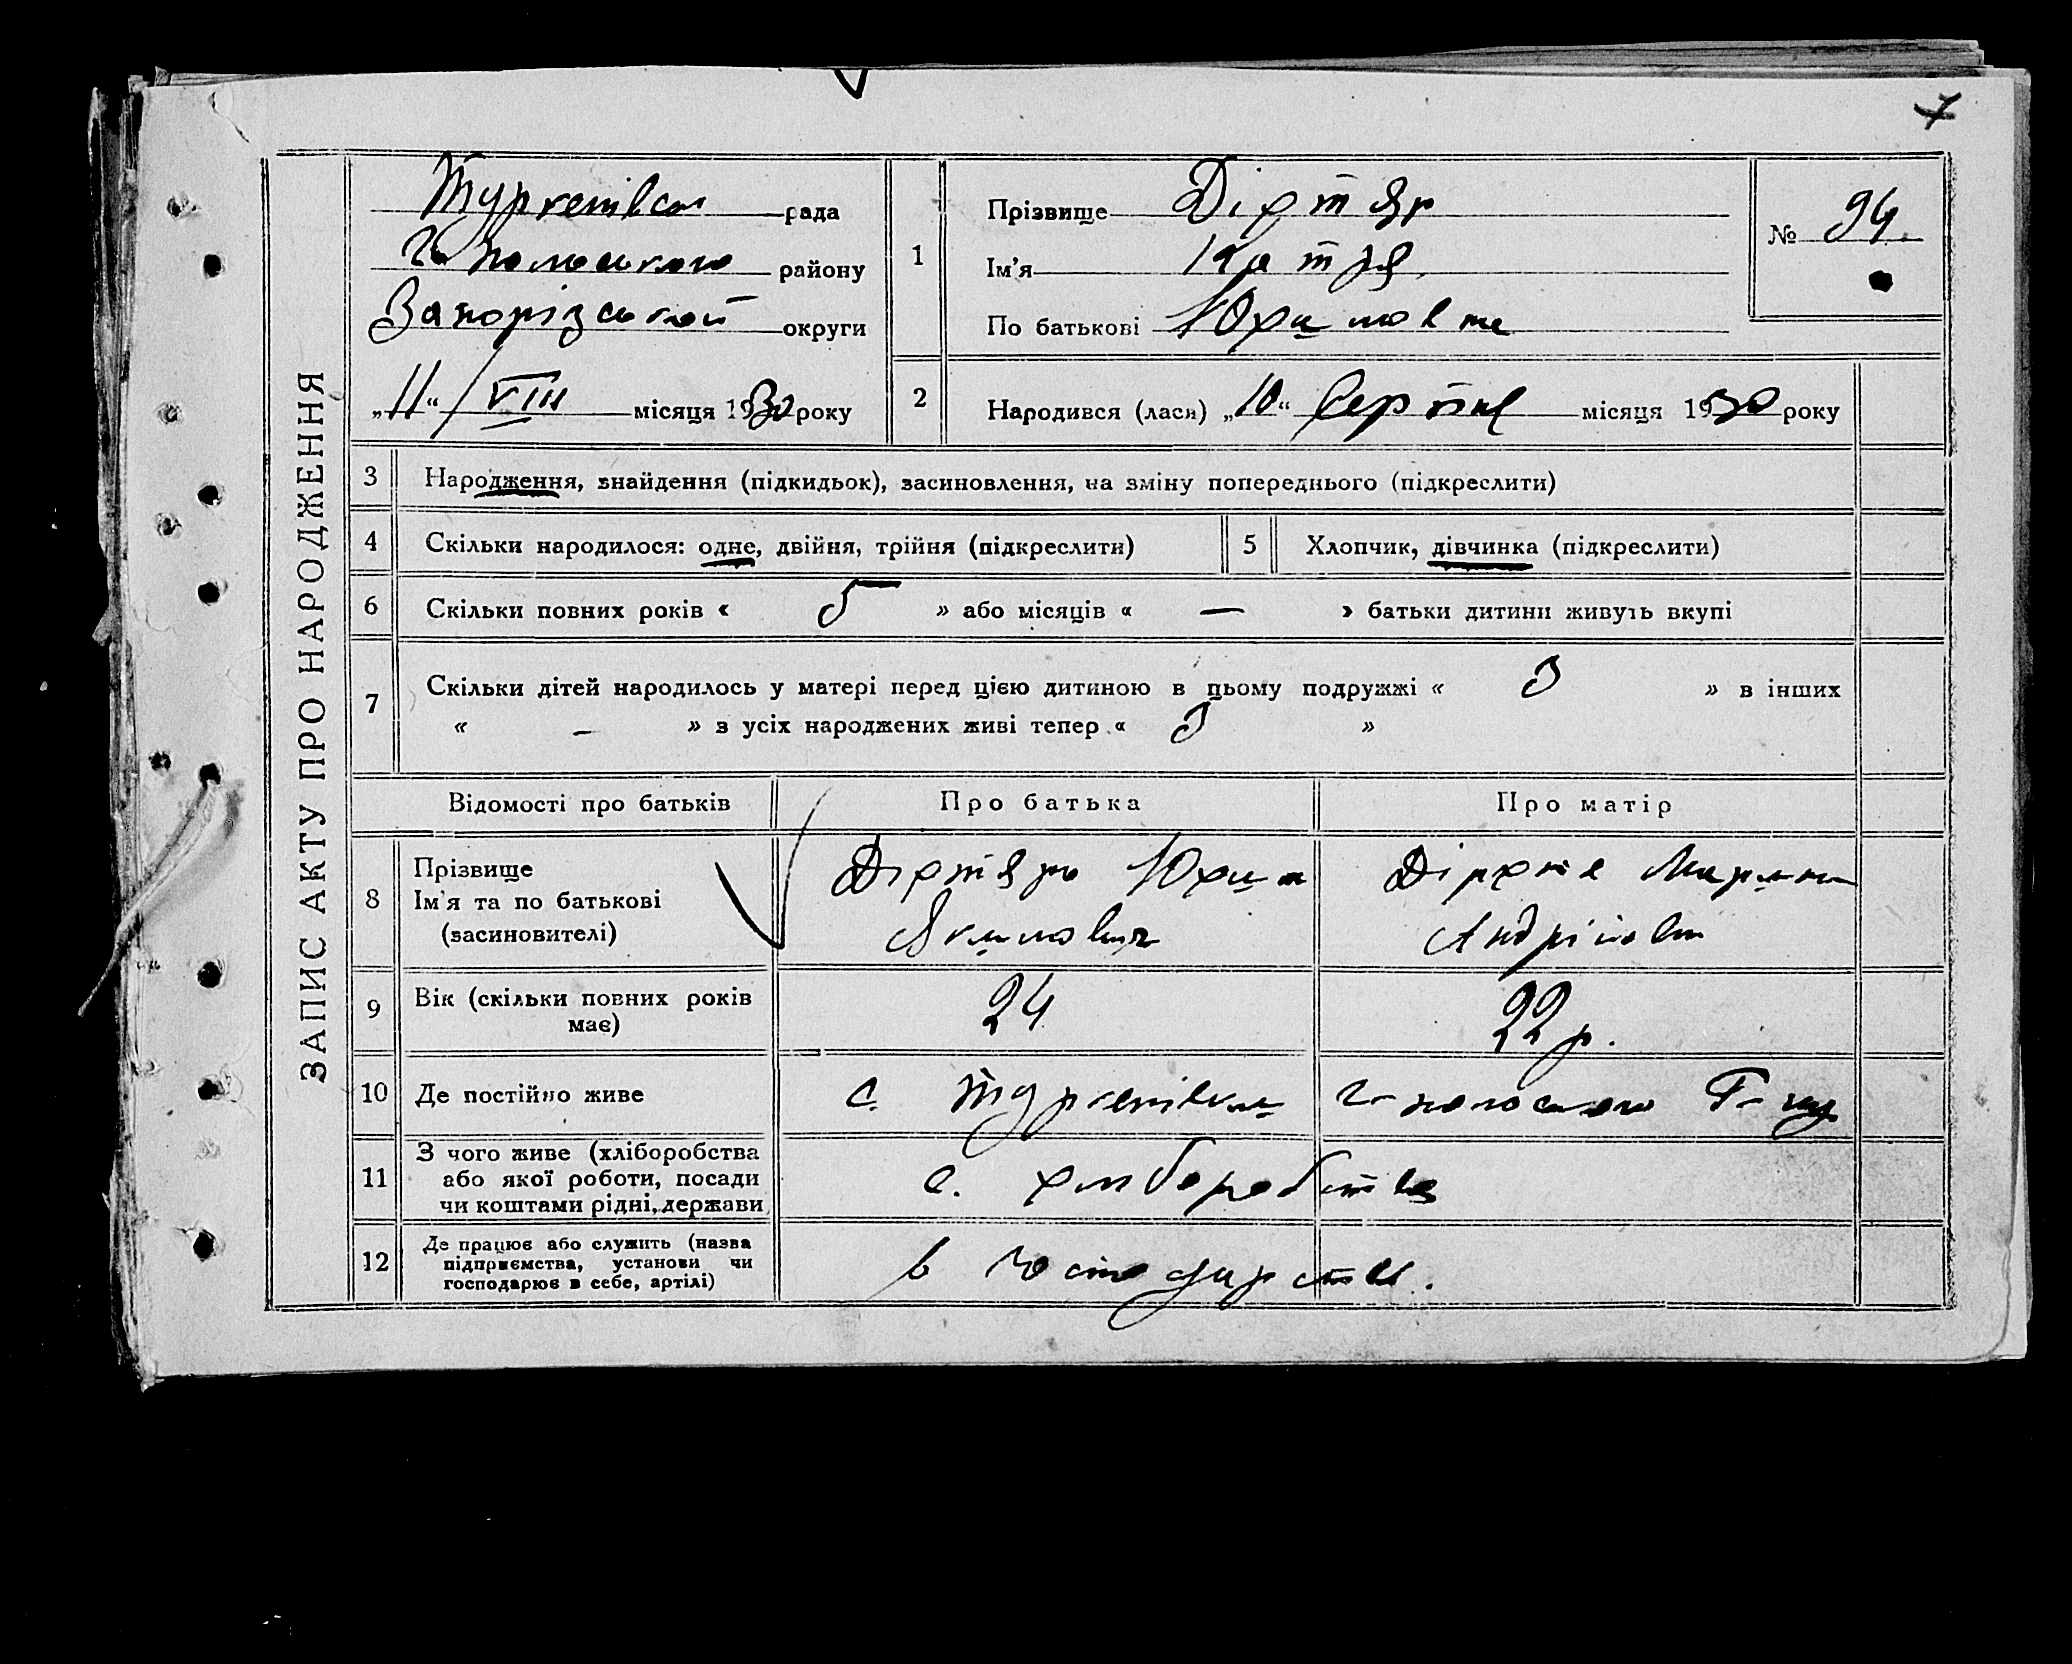 7
Тургенівська рада
Г-Польського району
Запорізської округи
„11“ / VIII місяця 1930 року
1
Прізвище Діхтяр
Ім'я Катря
По батькові Юхимовна
№ 94
2
Народився (лася) „10“ Серпня місяця 1930 року
ЗАПИС АКТУ ПРО НАРОДЖЕННЯ
3 Народження, знайдення (підкидьок), засиновлення, на зміну попереднього (підкреслити)
4 Скільки народилося: одне, двійня, трійня (підкреслити) 5 Хлопчик, дівчинка (підкреслити)
6 Скільки повних років « 5 » або місяців « — » батьки дитини живуть вкупі
7 Скільки дітей народилось у матері перед цією дитиною в цьому подружжі « 3 » в інших
« – » з усіх народжених живі тепер « 3 »
Відомості про батьків Про батька Про матір
8 Прізвище
Ім'я та по батькові
(засиновителі)
Діхтярь Юхим
Якимович
Марина
Андріівна
9 Вік (скільки повних років
має)
24
22 р.
10 Де постійно живе с. Тургенівка Г-Польского Р-ну
11 З чого живе (хліборобства
або якої роботи, посади
чи коштами рідні, держави
с. хліборобства
12 Де працює або служить (назва
підприємства, установи чи
господарює в себе, артілі)
в господарстві.